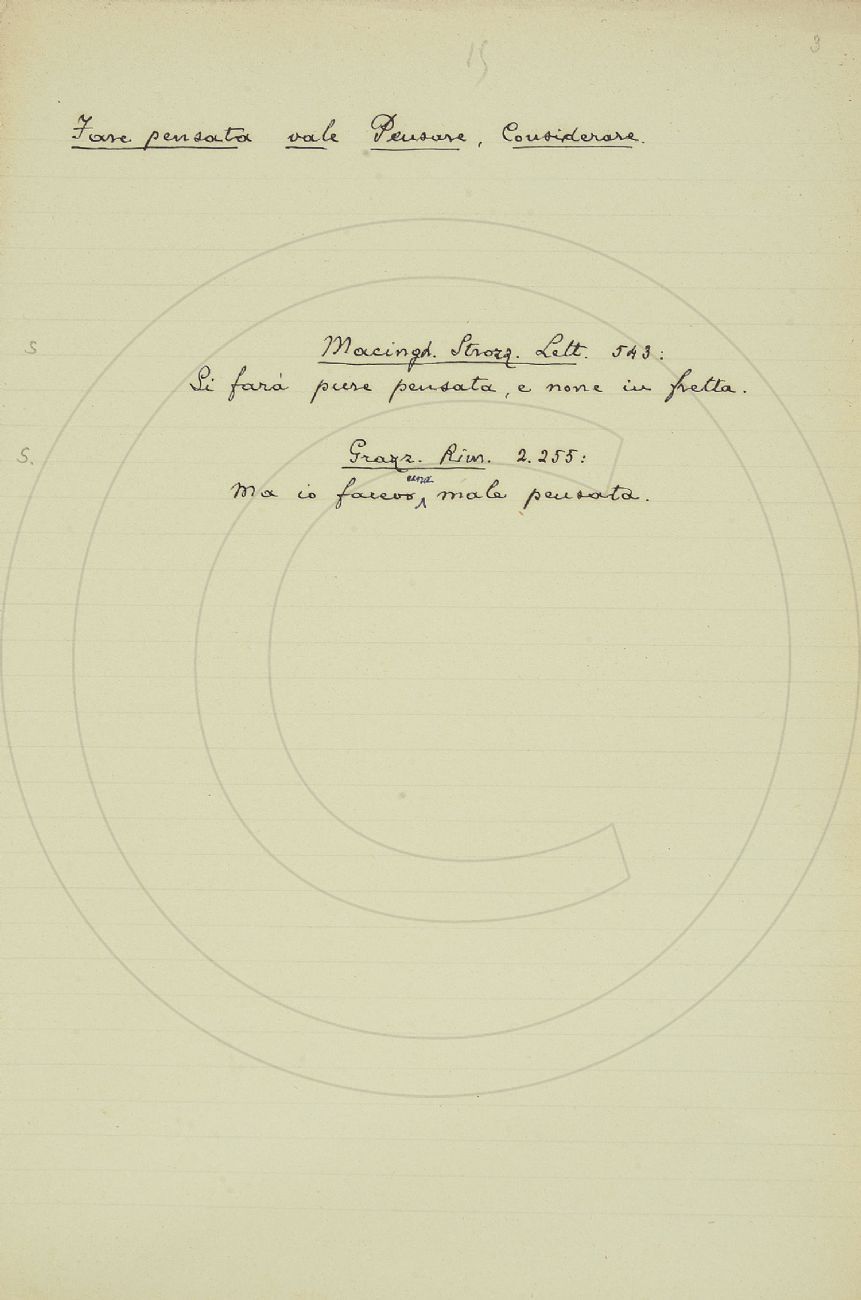 15
3
Fare pensata vale Pensare, Considerare.
S
Macingh. Strozz. Lett. 543:
Si farà pure pensata, e none in fretta.
S.
Grazz. Rim. 2.255:
una
Ma io facevo male pensata.